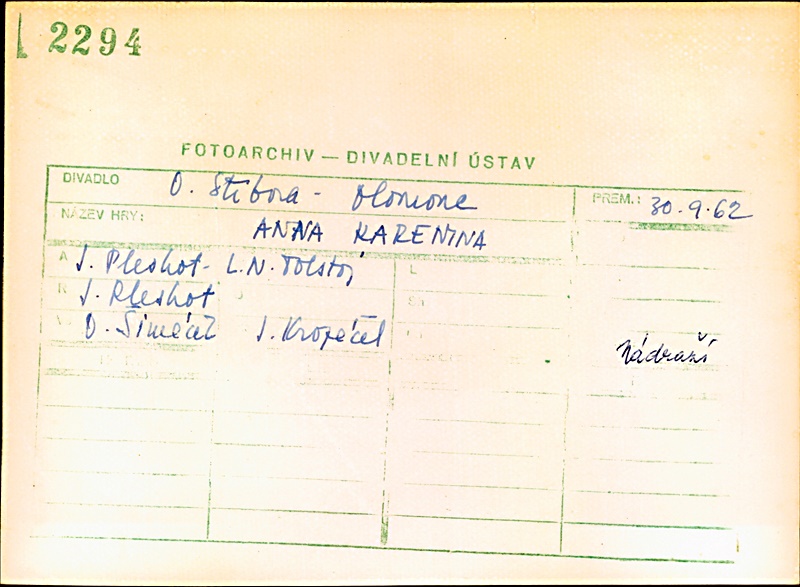 2294
FOTOARCHIV — DIVADELNÍ ÚSTAV
DIVADLO O. Stibora - Olomouc PREM.: 30.9.62
NÁZEV HRY: ANNA KARENINA
A J. Pleskot - L.N. Tolstoj L
R J. Pleskot
O. Šimáček J. Kropáček
Nádraží